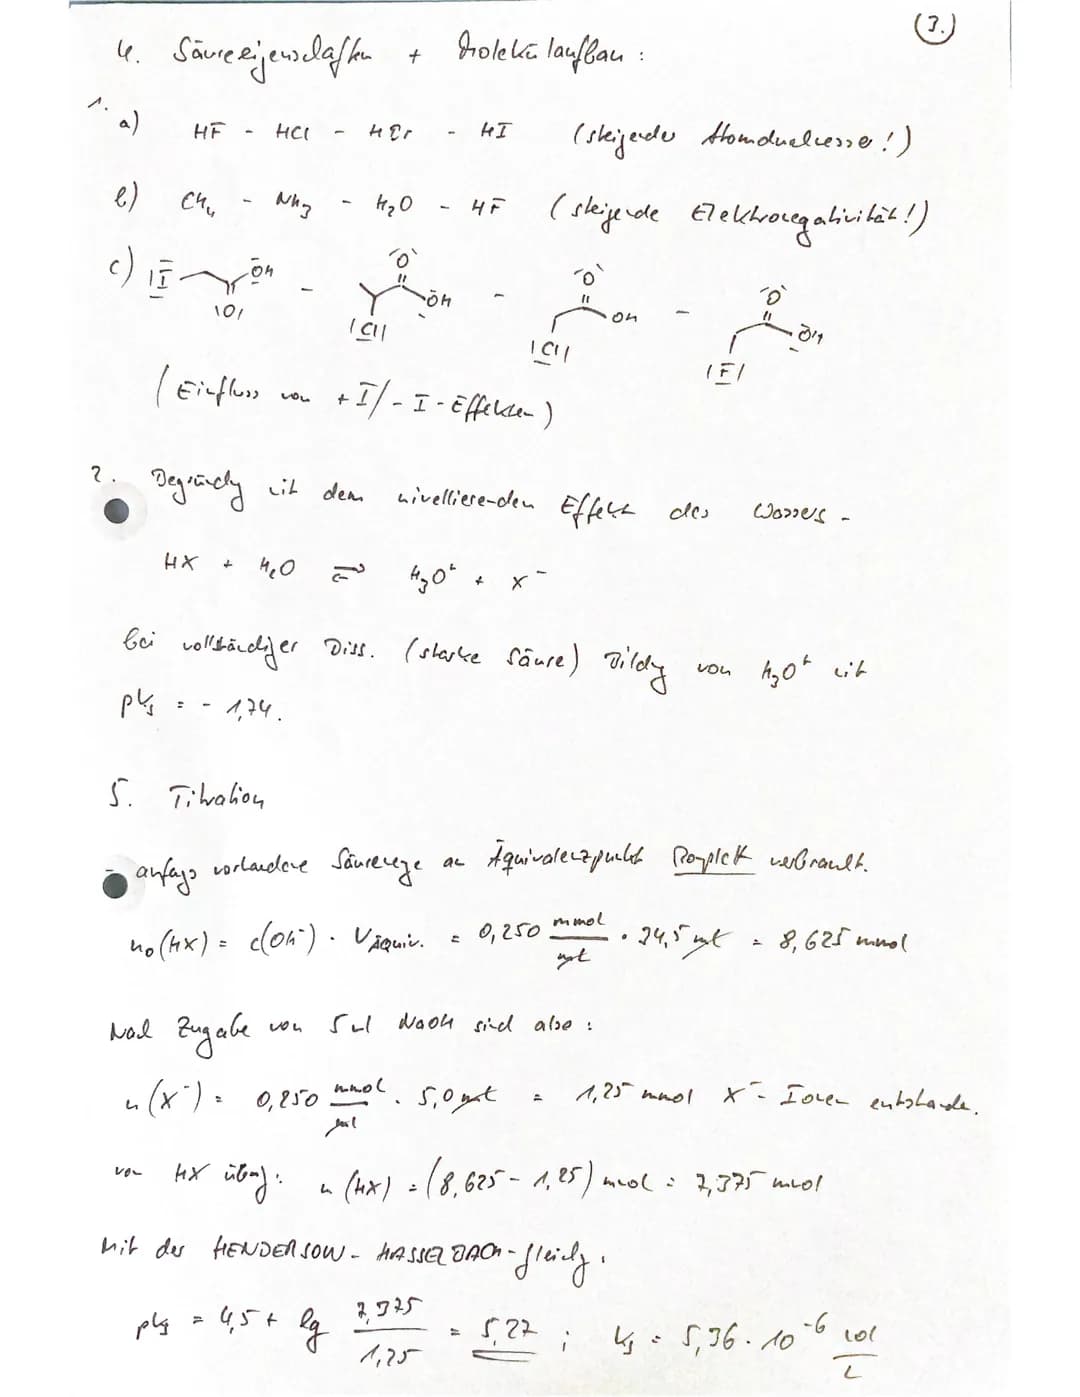 (3.)
4. Säureeigenschaften + Molekülaufbau :
1. a) HF - HCl - HBr - HI (steigender Atomdurchmesser!)
b) CH₄ - NH₃ - H₂O - HF (steigende Elektronegativität!)
c) I OH O - O OH Cl - O OH Cl - O OH F
(Einfluss von +I/-I-Effekten)
2. Begründg mit dem nivellierenden Effekt des Wassers -
HX + H₂O ⇌ H₃O⁺ + X⁻
bei vollständiger Diss. (starke Säure) Bildg von H₃O⁺ mit
pKs = - 1,74.
5. Titration
anfangs vorhandene Säuremenge am Äquivalenzpunkt komplett verbraucht.
n₀(HX) = c(OH⁻) · VÄquiv. = 0,250 mmol/ml · 34,5 ml = 8,625 mmol
Nach Zugabe von 5 ml NaOH sind also :
n(X⁻) = 0,250 mmol/ml · 5,0 ml = 1,25 mmol X⁻-Ionen entstanden.
von HX übrig: n(HX) = (8,625 - 1,25) mmol = 7,375 mmol
Mit der HENDERSON-HASSELBACH-Gleichg.
pKs = 4,5 + lg 7,375/1,25 = 5,27 ; Ks = 5,36 · 10⁻⁶ mol/L